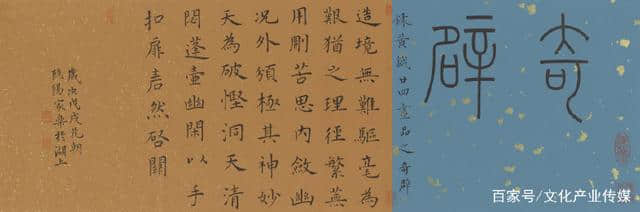 奇辟
錄黃鉞廿四畫品之奇辟
造境無難驅毫為
艱猶之理徑繁蕪
用刪苦思內斂幽
況外頒極其神妙
天為破慳洞天清
閟蓬壺幽閑以手
扣扉砉然啓關
歲次戊戌花朝
陽家樂於湖上
百家号/文化产业传媒